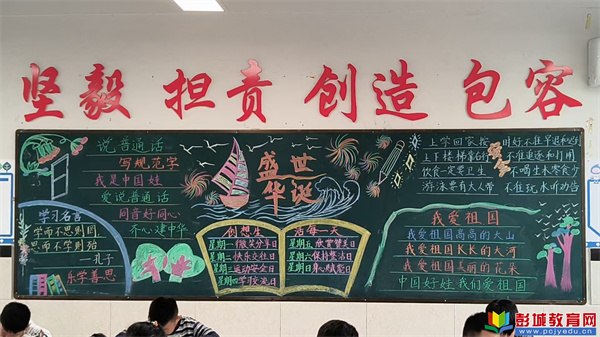 坚毅 担责 创造 包容
说普通话
写规范字
我是中国娃
爱说普通话
同音好同心
齐心建中华
学习名言
学而不思则罔
思而不学则殆
—孔子
乐学善思
盛世
华诞
创想生活每一天
星期一微笑分享日
星期二快乐交往日
星期三运动安全日
星期四学习交流日
星期五欣赏赞美日
星期六保持整洁日
星期日
安全
上学回家按时
不准早退和
上下楼梯靠右行
不准追逐和打闹
饮食一定要卫生
不喝生水零食
游泳要有大人带
不准玩水听劝告
我爱祖国
我爱祖国高高的大山
我爱祖国KK的大河
我爱祖国美丽的花朵
中国好娃我们爱祖国
彭城教育网
www.pcjyedu.com